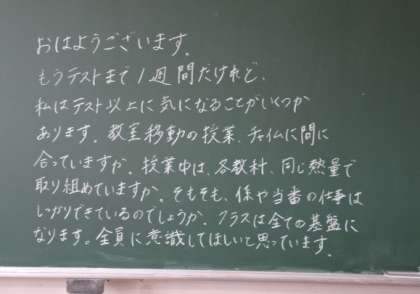 おはようございます。
もうテストまで1週間だけれど、
私はテスト以上に気になることがいくつか
あります。教室移動の授業、チャイムに間に
合っていますか。授業中は、各教科、同じ熱量で
取り組めていますか。そもそも、係や当番の仕事は
しっかりできているのでしょうか。クラスは全ての基盤に
なります。全員に意識してほしいと思っています。